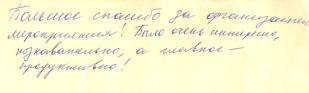 Большое спасибо за организацию
мероприятия! Было очень интересно,
познавательно, а главное –
продуктивно!